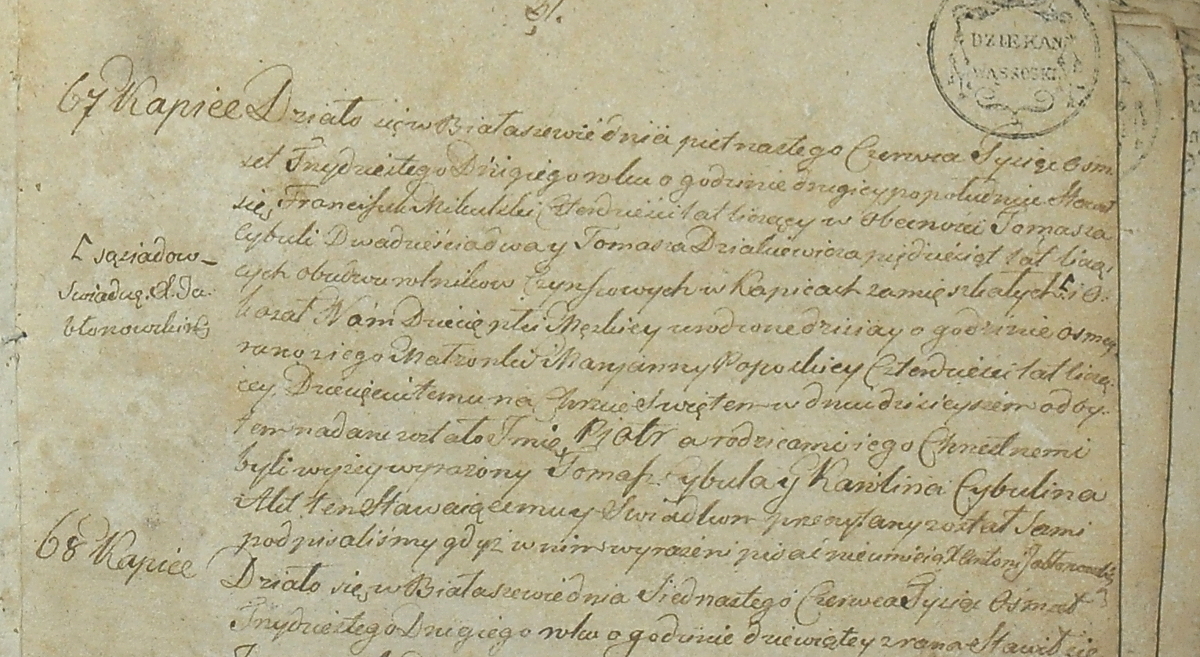 DZIEKAN
WĄSSOSKI
67 Kapice Działo się w Białaszewie dnia piętnastego Czerwca Tysiąc Osm
set Trzydziestego Drugiego roku o godzinie drugiey popołudniu Stawił
się Franciszek Mikulski Czterdzieści lat liczący w obecnosci Tomasza
Cybuli Dwadzieścia dwa y Tomasza Działkiewicza pięćdziesiąt lat liczą
cych obudwu rolników Czynszowych w Kapicach zamięszkałych i o
kazał Nam Dziecię płci Męzkiey urodzone dzisiay o godzinie osmey
rano z iego Małżonki Maryanny Popockiey Czterdzieści lat liczą
cey Dziecięciu temu na Chrzcie Świętem w dniu dzisieyszem odby
tem nadane zostało Imię Piotr a rodzicami iego Chrzestnemi
byli wyżey wyrażony Tomasz Cybula y Karolina Cybulina
Akt ten Stawaiącemu y Swiadkom przeczytany został Sami
podpisaliśmy gdyż w nim wyrażeni pisać nieumieią X Antoni Jabłonowski
Ⱶ sąsiadow_
swiadczę. X. Ja
błonowski
68 Kapice
Działo się w Białaszewie dnia Siednastego Czerwca Tysiąc Osmset
Trzydziestego Drugiego roku o godzinie dziewiątey z rana Stawił się